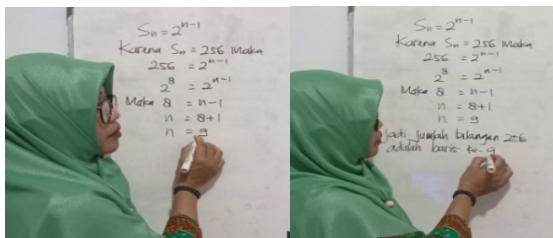 Sn = 2^{n-1}
Karena Sn = 256 Maka
256 = 2^{n-1}
2^8 = 2^{n-1}
Maka 8 = n-1
n = 8+1
n = 9
Sn = 2^{n-1}
Karena Sn = 256 Maka
256 = 2^{n-1}
2^8 = 2^{n-1}
Maka 8 = n-1
n = 8+1
n = 9
Jadi Jumlah bilangan 256
adalah baris ke-9